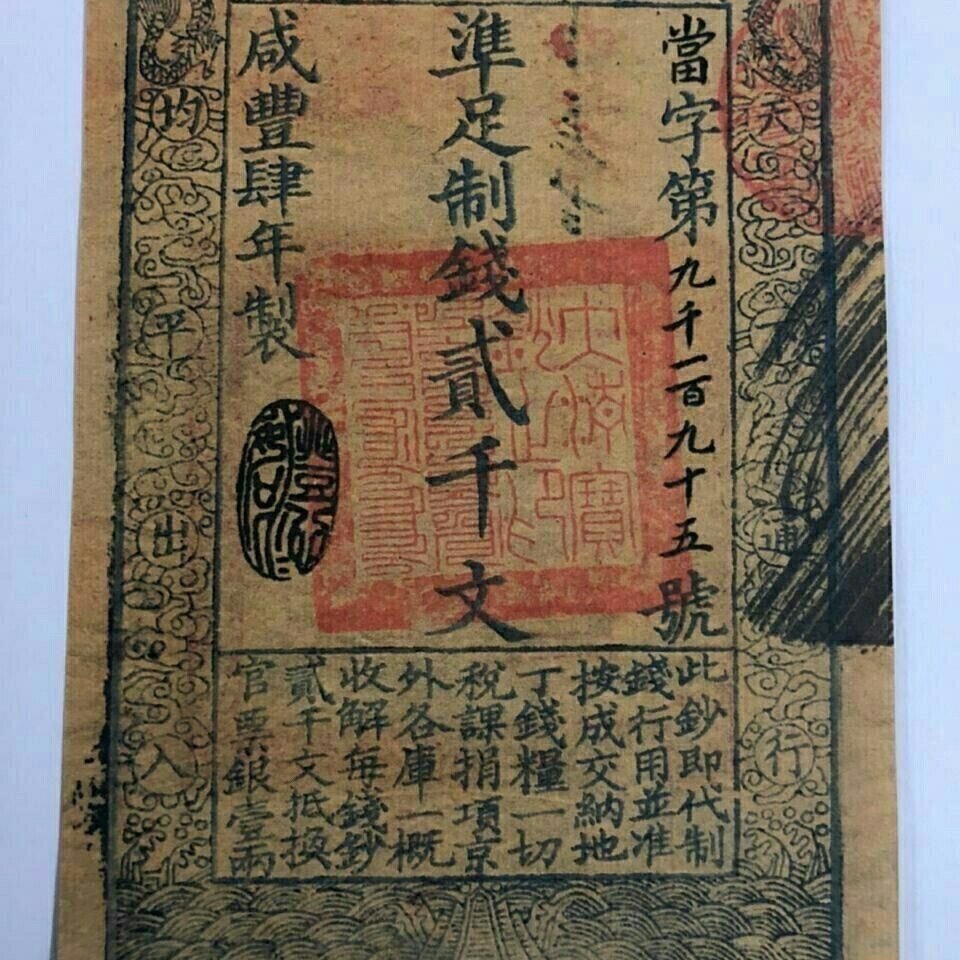 當字第九千一百九十五號
準足制錢貳千文
咸豐肆年製
此鈔即代制
錢行用並准
按成交納地
丁錢糧一切
稅課捐項京
外各庫一概
收解每錢鈔
貳千文抵換
官票銀壹兩
天下通行
均平出入